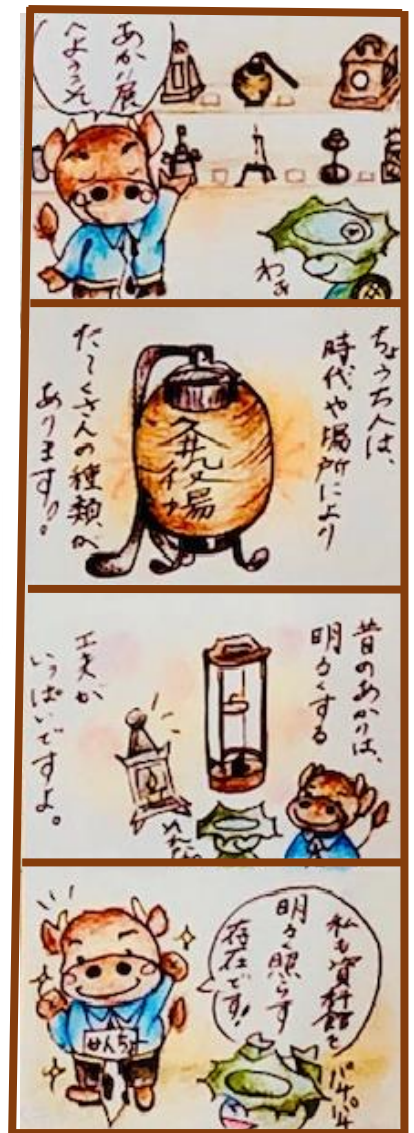 あかり展
へようこそ
わぁ
ちょうちんは、
時代や場所により
役場
たくさんの種類が
あります!。
昔のあかりは、
明るくする
工夫が
いっぱいですよ。
私も資料館を
明るく照らす
存在です!
パチパチ